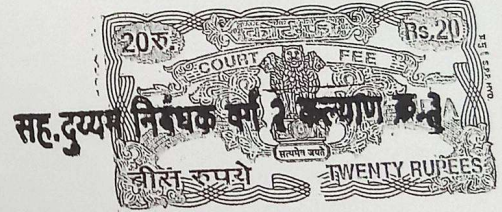 20रु. Rs.20
COURT FEE
सह.दुय्यम निबंधक वर्ग २ कल्याण क्र.
सत्यमेव जयते
बीस रुपये TWENTY RUPEES